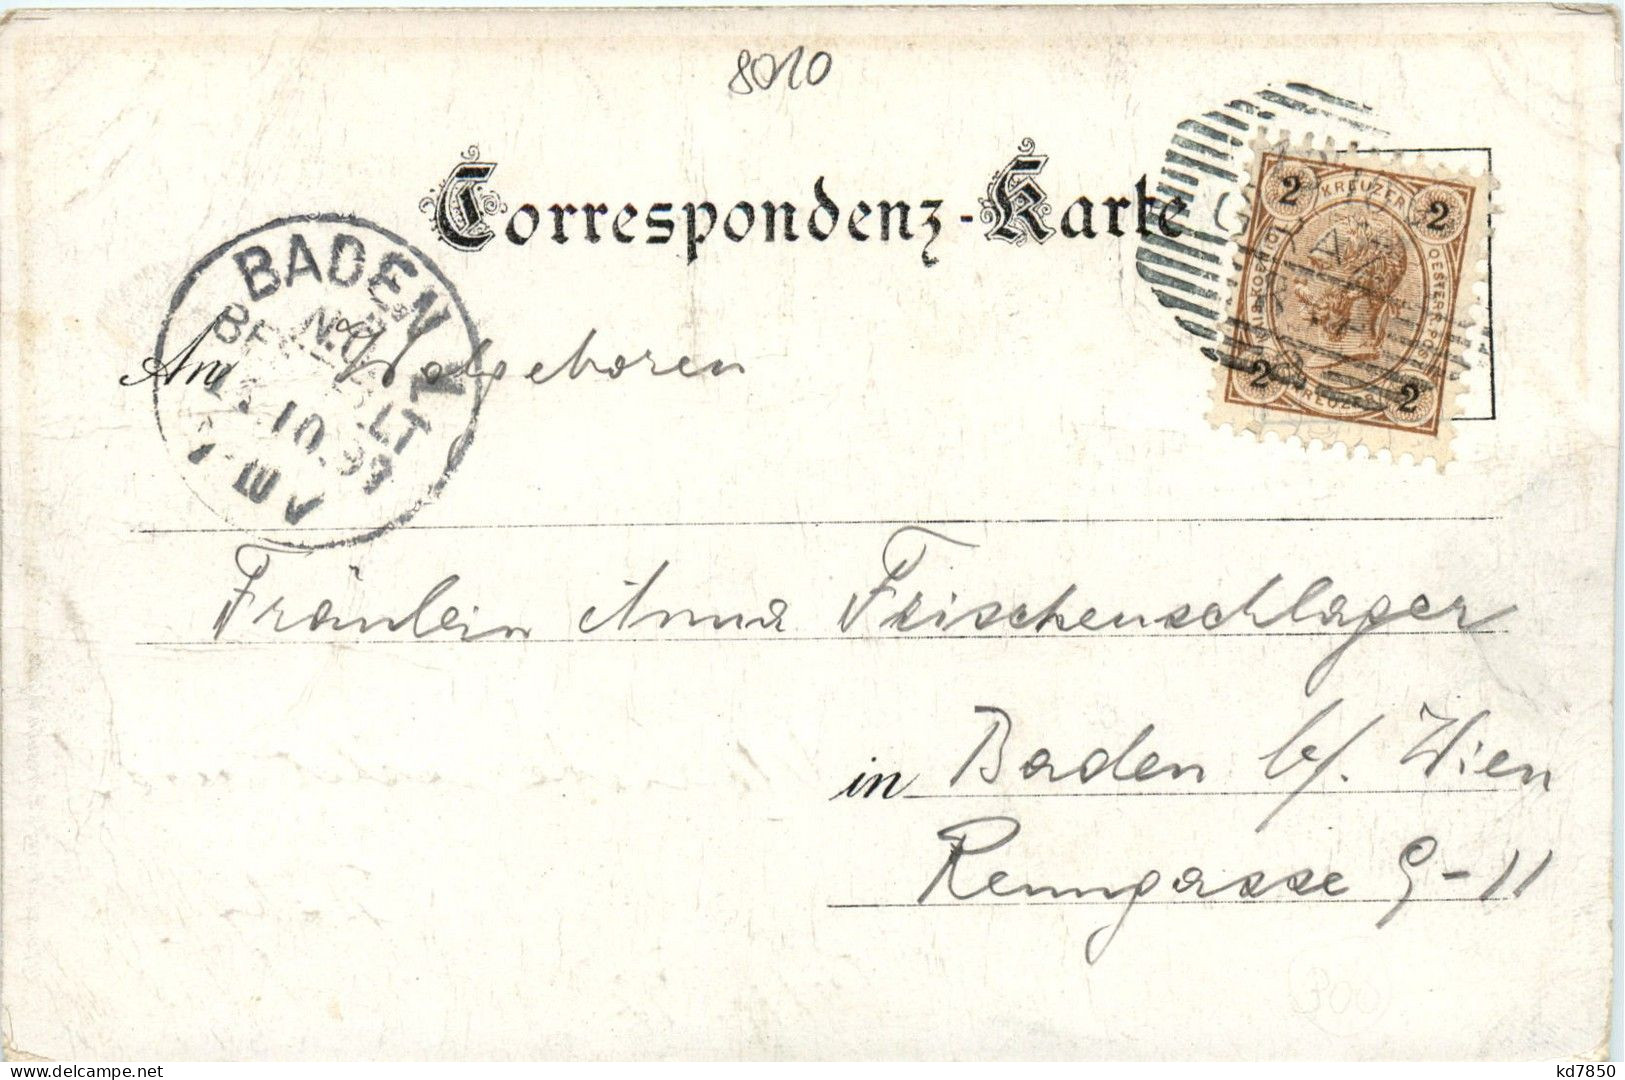 8010
Correspondenz-Karte
2 KREUZER 2
KAIS. KOENIGL. OESTERR. POST
2 KREUZER 2
BADEN
N.Ö.
BESTELLT
10.99
7-8 V
An Wolgeboren
Fräulein Anna Frischenschlager
in Baden b/. Wien
Renngasse 9-11
300
kd7850